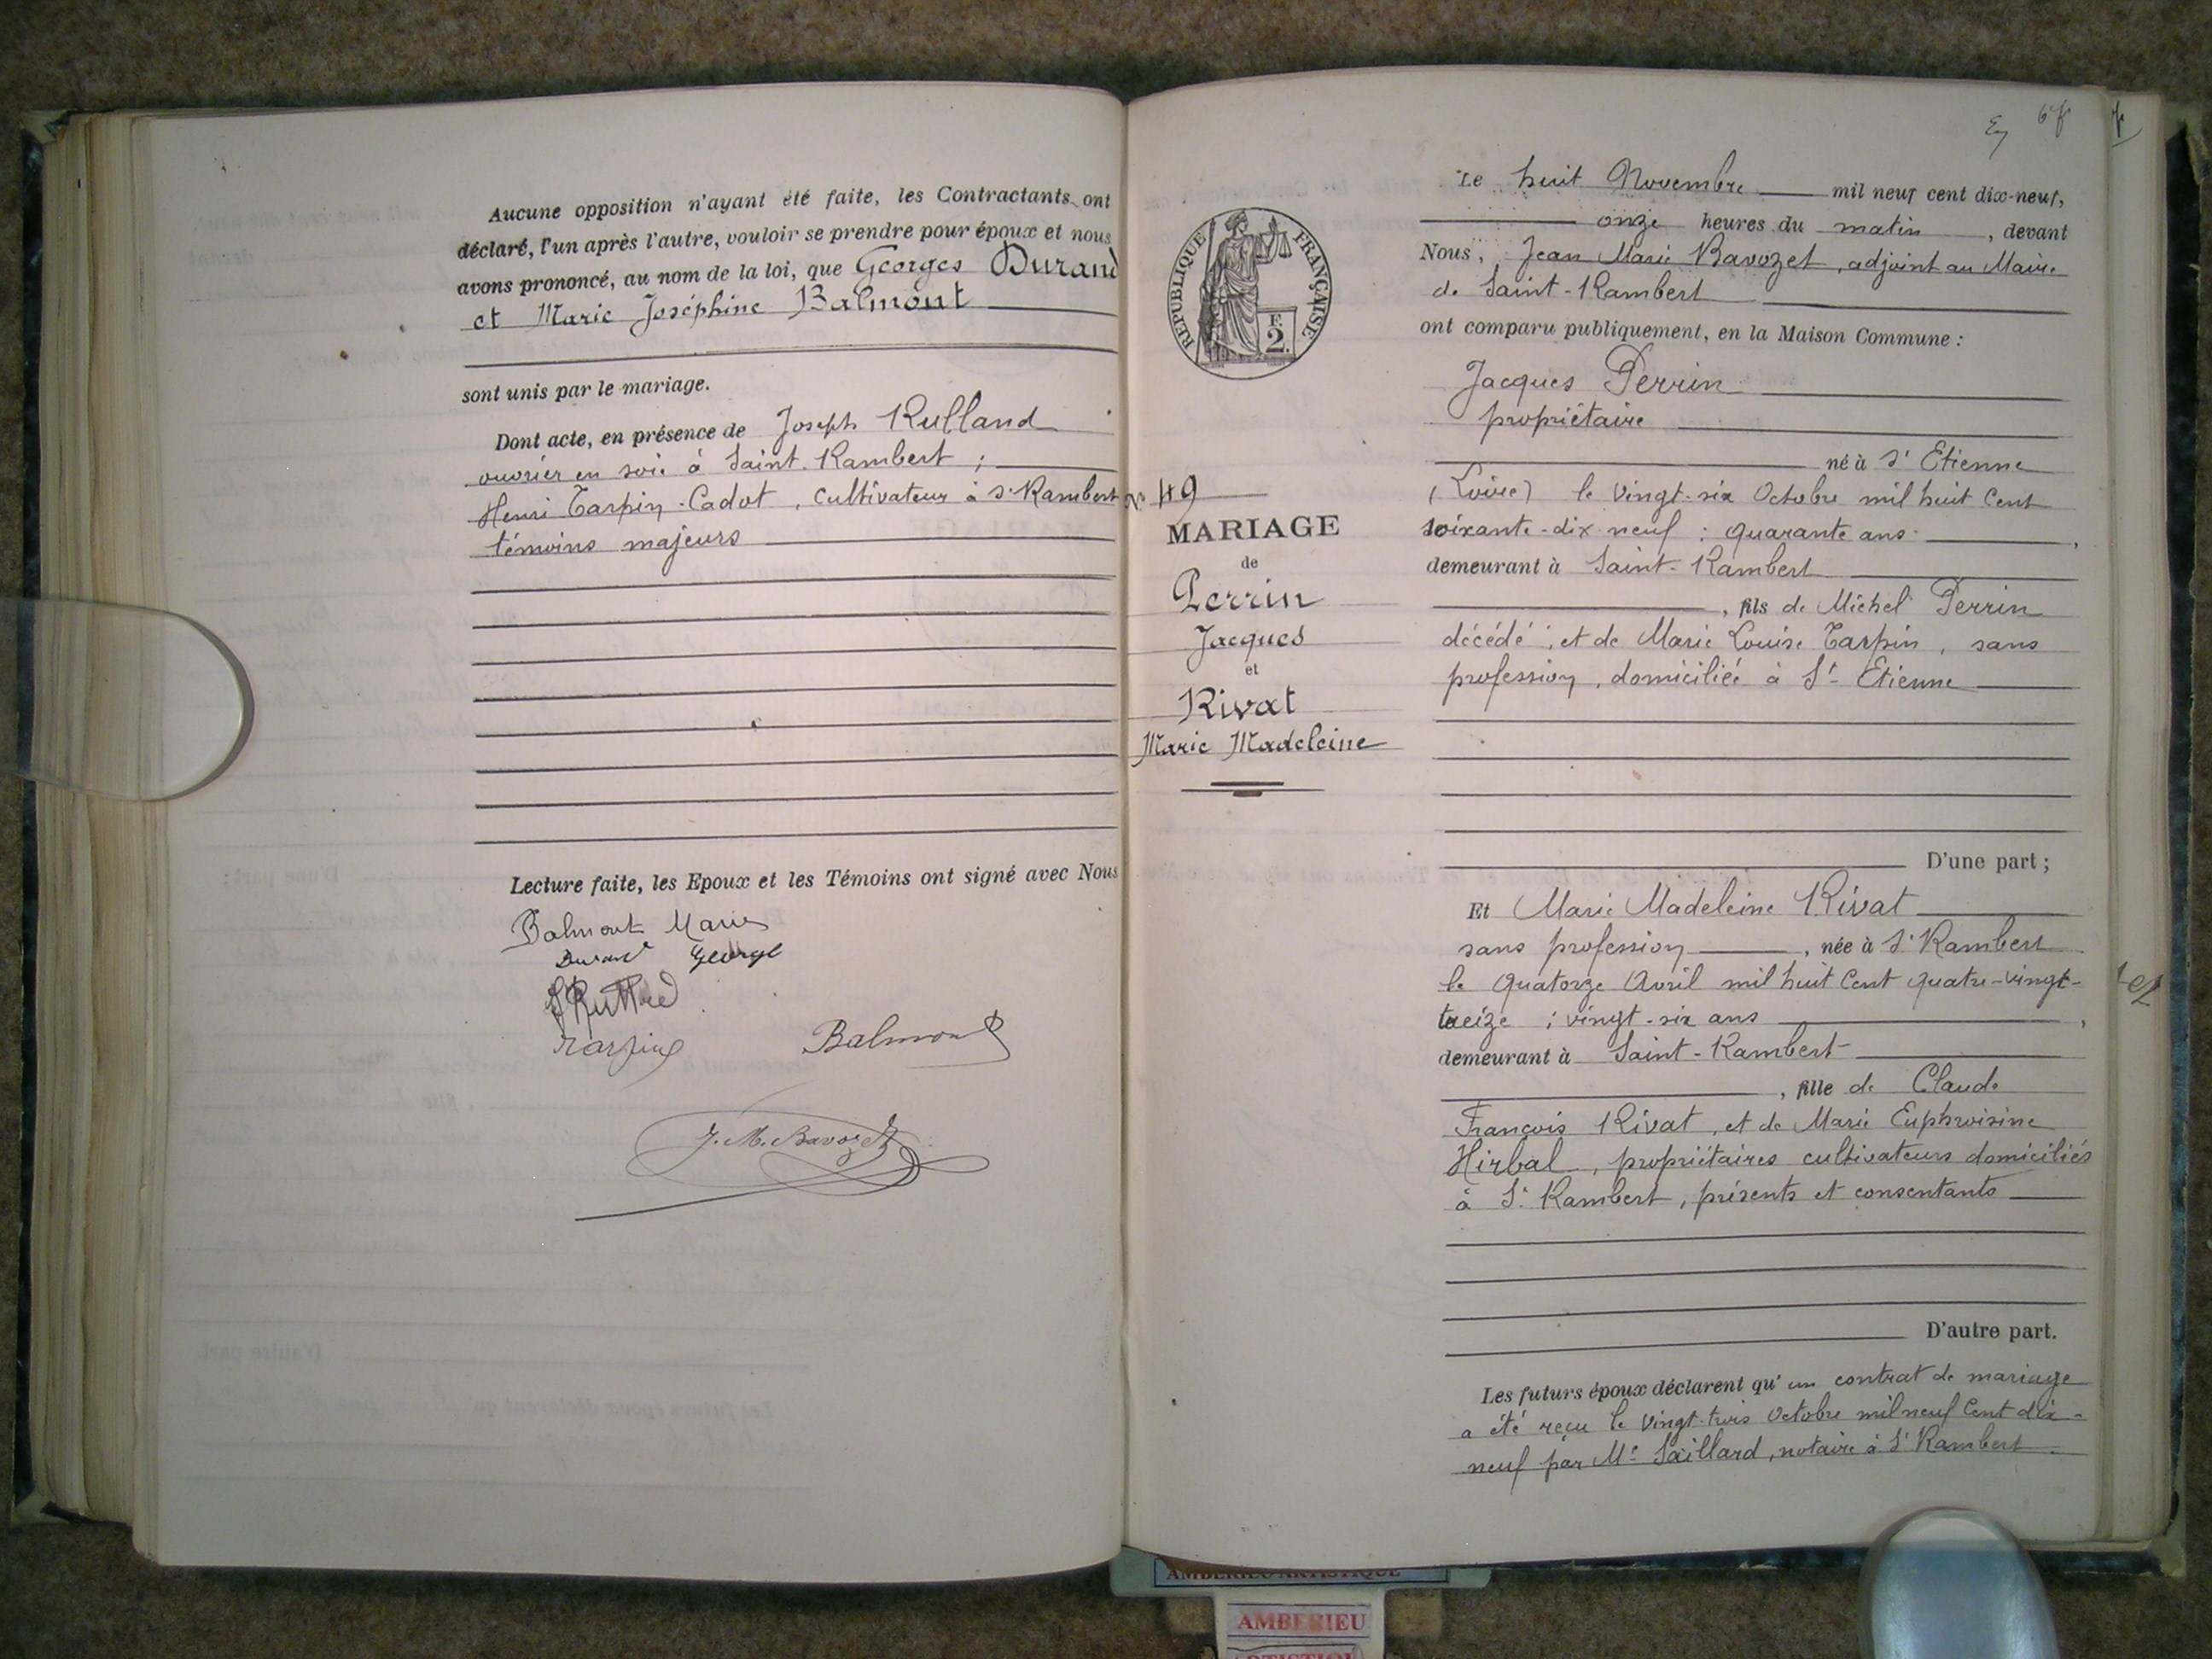 Aucune opposition n'ayant été faite, les Contractants ont
déclaré, l'un après l'autre, vouloir se prendre pour époux et nous
avons prononcé, au nom de la loi, que Georges Durand
et Marie Joséphine Balmont
sont unis par le mariage.
Dont acte, en présence de Joseph Rulland
ouvrier en soie à Saint-Rambert ;
Henri Tarpin-Cadot, cultivateur à St Rambert
témoins majeurs
Lecture faite, les Epoux et les Témoins ont signé avec Nous
Balmont Marie
Durand George
Tarpin
Balmont
J. M. Bavozet
67
Le huit Novembre mil neuf cent dix-neuf,
onze heures du matin, devant
Nous, Jean Marie Bavozet, adjoint au Maire
de Saint-Rambert
ont comparu publiquement, en la Maison Commune :
Jacques Perrin
propriétaire
né à St Etienne
(Loire) le vingt-six Octobre mil huit cent
soixante-dix neuf : quarante ans,
demeurant à Saint-Rambert
, fils de Michel Perrin
décédé ; et de Marie Louise Tarpin, sans
profession, domiciliée à St Etienne
D'une part ;
Et Marie Madeleine Rivat
sans profession, née à St Rambert
le quatorze Avril mil huit cent quatre-vingt-
treize ; vingt-six ans,
demeurant à Saint-Rambert
, fille de Claude
François Rivat, et de Marie Euphroisine
Hirbal, propriétaires cultivateurs domiciliés
à St Rambert, présents et consentants
D'autre part.
Les futurs époux déclarent qu'un contrat de mariage
a été reçu le vingt-trois Octobre mil neuf cent dix-
neuf par Me Saillard, notaire à St Rambert.
REPUBLIQUE FRANÇAISE
F.
2.
No 49
MARIAGE
de
Perrin
Jacques
et
Rivat
Marie Madeleine
AMBERIEU ARTISTIQUE
AMBERIEU